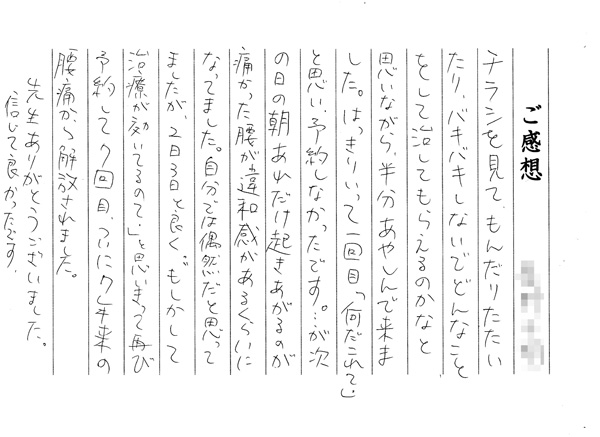 ご感想
チラシを見て、もんだりたたい
たり、バキバキしないでどんなこと
をして治してもらえるのかなと
思いながら、半分あやしんで来ま
した。はっきりいって一回目「何だこれて」
と思い、予約しなかったです。…が次
の日の朝あれだけ起きあがるのが
痛かった腰が違和感があるくらいに
なってました。自分では偶然だと思って
ましたが、2日3日と良く、“もしかして
治療が効いてるので・」と思いきって再び
予約して7回目、ついに7レ年来の
腰痛から解放されました。
先生ありがとうございました。
信じて良かったです。